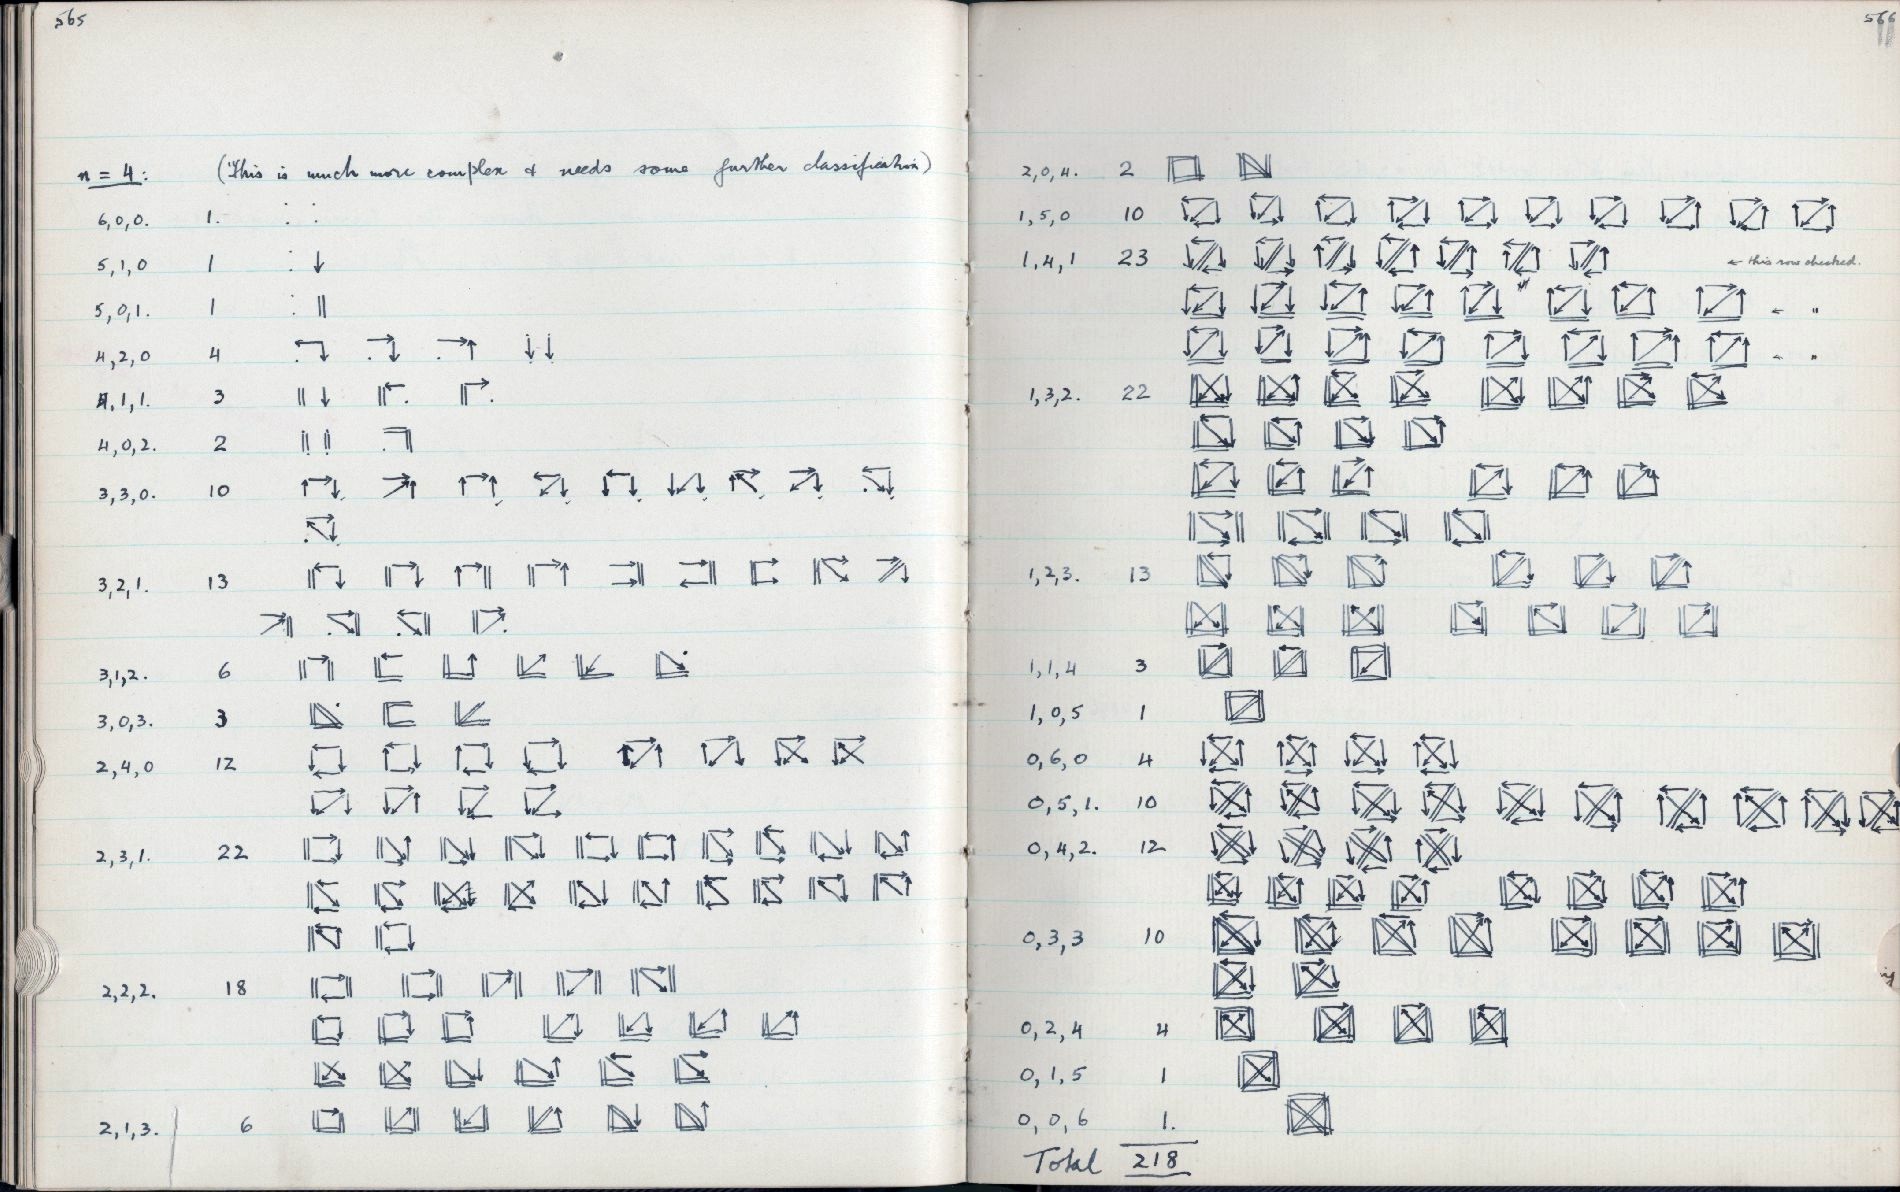 565
n = 4: (This is much more complex & needs some further classification)
6,0,0. 1.
5,1,0 1
5,0,1. 1
4,2,0 4
4,1,1. 3
4,0,2. 2
3,3,0. 10
3,2,1. 13
3,1,2. 6
3,0,3. 3
2,4,0 12
2,3,1. 22
2,2,2. 18
2,1,3. 6
566
2,0,4. 2
1,5,0 10
1,4,1 23 ← this row checked.
← "
← "
1,3,2. 22
1,2,3. 13
1,1,4 3
1,0,5 1
0,6,0 4
0,5,1. 10
0,4,2. 12
0,3,3 10
0,2,4 4
0,1,5 1
0,0,6 1.
Total 218